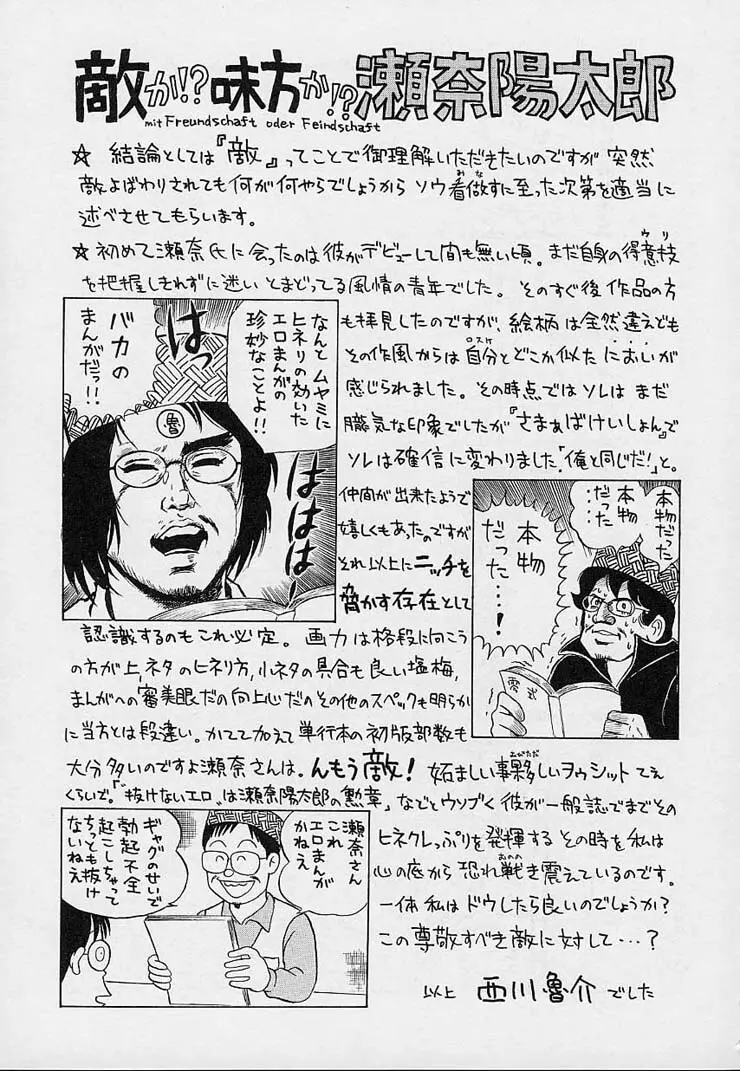 敵か!?味方か!?瀬奈陽太郎
mit Freundschaft oder Feindschaft
☆ 結論としては『敵』ってことで御理解いただきたいのですが 突然
敵よばわりされても何が何やらでしょうから ソウ看做すに至った次第を適当に
みな
述べさせてもらいます。
☆ 初めて瀬奈氏に会ったのは彼がデビューして間も無い頃。まだ自身の得意技
ウリ
を把握しきれずに迷い とまどってる風情の青年でした。 そのすぐ後 作品の方
も拝見したのですが、絵柄は全然違えども
その作風からは自分とどこか似た においが
感じられました。その時点では ソレは まだ
朧気な印象でしたが『さまぁばけいしょん』で
ソレは確信に変わりました「俺と同じだ!」と。
仲間が出来たようで
嬉しくもあったのですが
それ以上にニッチを
脅かす存在として
なんとムヤミに
ヒネリの効いた
エロまんがの
珍妙なことよ!!
はっ
ははは
バカの
まんがだっ!!
魯
本物だった
本物
だった…
本物
だった…!
零式
認識するのもこれ必定。 画力は格段に向こう
の方が上、ネタのヒネリ方、小ネタの具合も良い塩梅、
まんがへの審美眼だの向上心だのその他のスペックも明らか
に当方とは段違い。かてて加えて単行本の初版部数も
大分多いのですよ瀬奈さんは。んもう敵! 妬ましい事夥しいヲゥシット てえ
おびただ
くらいで。「"抜けないエロ"は瀬奈陽太郎の勲章」などとウソブく彼が一般誌でまでその
ヒネクレっぷりを発揮する その時を 私は
心の底から 恐れ戦き震えているのです。
おのの
一体 私は ドウしたら良いのでしょうか?
この尊敬すべき敵に対して…?
以上 西川魯介 でした
瀬奈さん
これ
エロまんが
かねえ
ギャグのせいで
勃起不全
起こしちゃって
ちっとも抜け
ないねえ